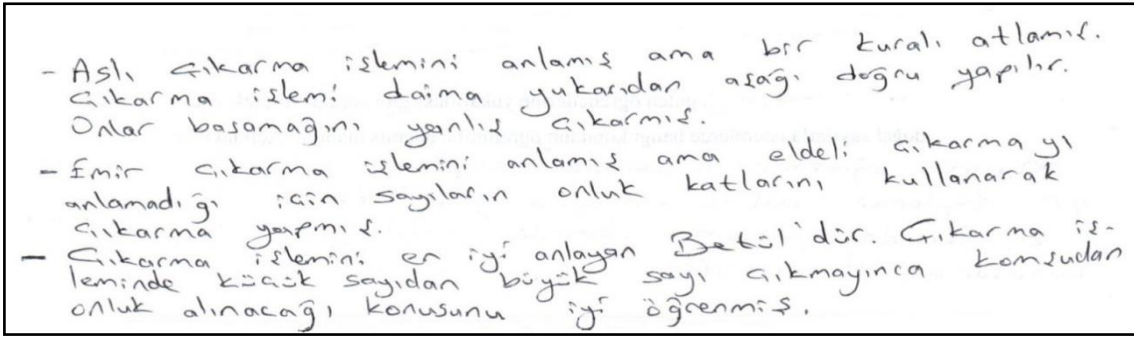 - Aslı çıkarma işlemini anlamış ama bir kuralı atlamış.
Çıkarma işlemi daima yukarıdan aşağı doğru yapılır.
Onlar basamağını yanlış çıkarmış.
- Emir çıkarma işlemini anlamış ama eldeli çıkarmayı
anlamadığı için sayıların onluk katlarını kullanarak
çıkarma yapmış.
- Çıkarma işlemini en iyi anlayan Betül'dür. Çıkarma iş-
leminde küçük sayıdan büyük sayı çıkmayınca komşudan
onluk alınacağı konusunu iyi öğrenmiş.